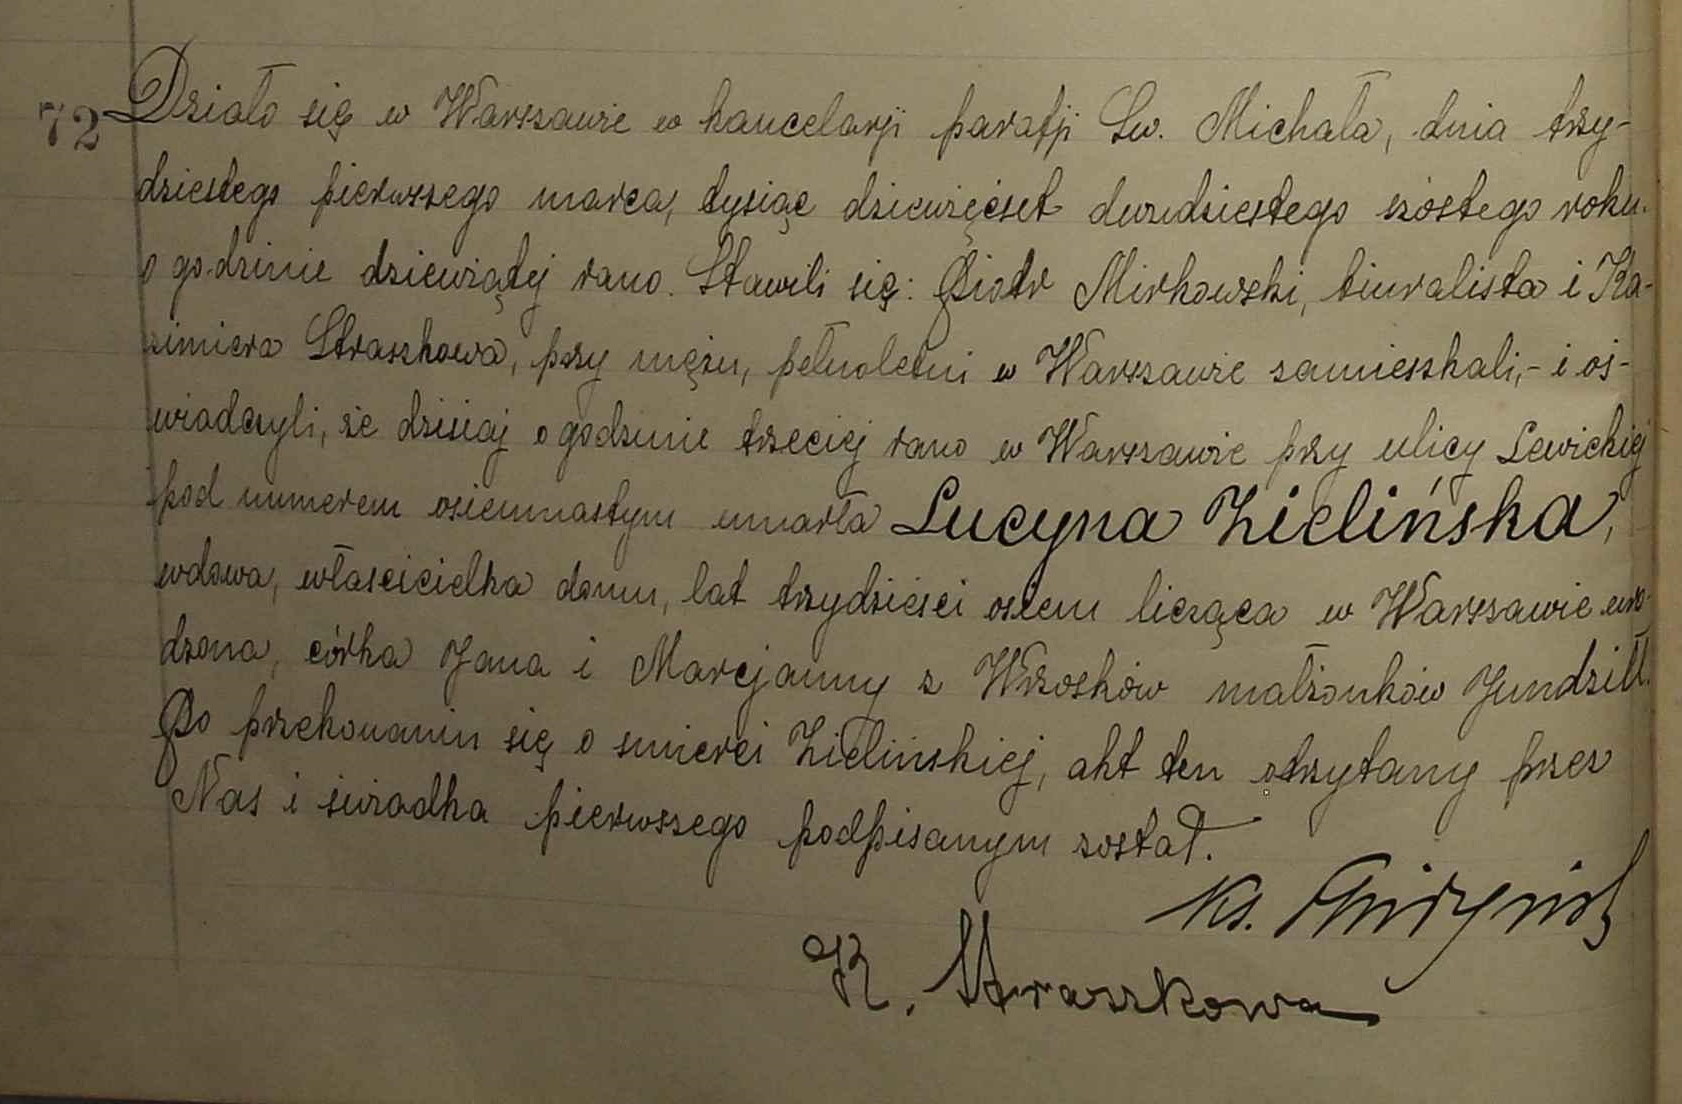 72 Działo się w Warszawie w kancelarji parafji Św. Michała, dnia trzy-
dziestego pierwszego marca, tysiąc dziewięćset dwudziestego szóstego roku
o godzinie dziewiątej rano. Stawili się: Piotr Mirkowski, biuralista i Ka-
zimiera Straszkowa, przy mężu, pełnoletni w Warszawie zamieszkali,- i oś-
wiadczyli, że dzisiaj o godzinie trzeciej rano w Warszawie przy ulicy Lewickiej
pod numerem osiemnastym umarła Lucyna Zielińska,
wdowa, właścicielka domu, lat trzydzieści osiem licząca w Warszawie uro-
dzona, córka Jana i Marcjanny z Wrzosków małżonków Jundziłł.
Po przekonaniu się o śmierci Zielińskiej, akt ten odczytany przez
Nas i świadka pierwszego podpisanym został.
Ks.
K. Straszkowa